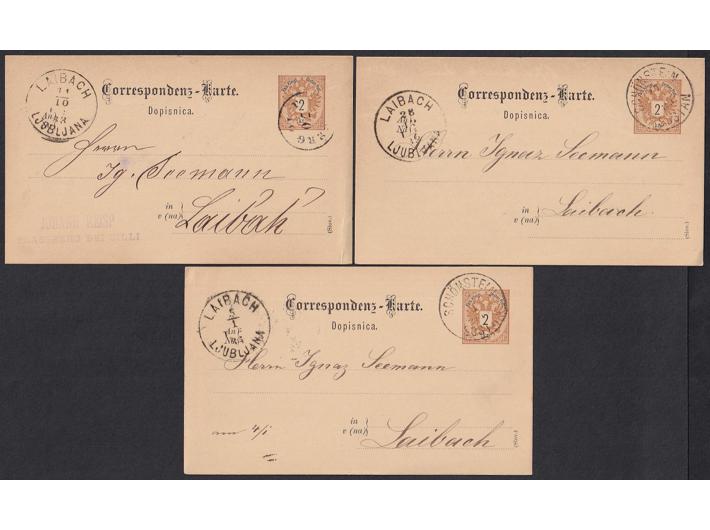 LAIBACH
11
10
LJUBLJANA
Correspondenz-Karte.
Dopisnica.
2
Herrn
Ig. Seemann
in
v (na)
Laibach
(Slov.)
LAIBACH
LJUBLJANA
Correspondenz-Karte.
Dopisnica.
2
SCHÖNSTEIN
Herrn Ignaz Seemann
in
v (na)
Laibach.
(Slov.)
LAIBACH
5
1
LJUBLJANA
Correspondenz-Karte.
Dopisnica.
2
SCHÖNSTEIN
Herrn Ignaz Seemann
am 4/1
in
v (na)
Laibach
(Slov.)